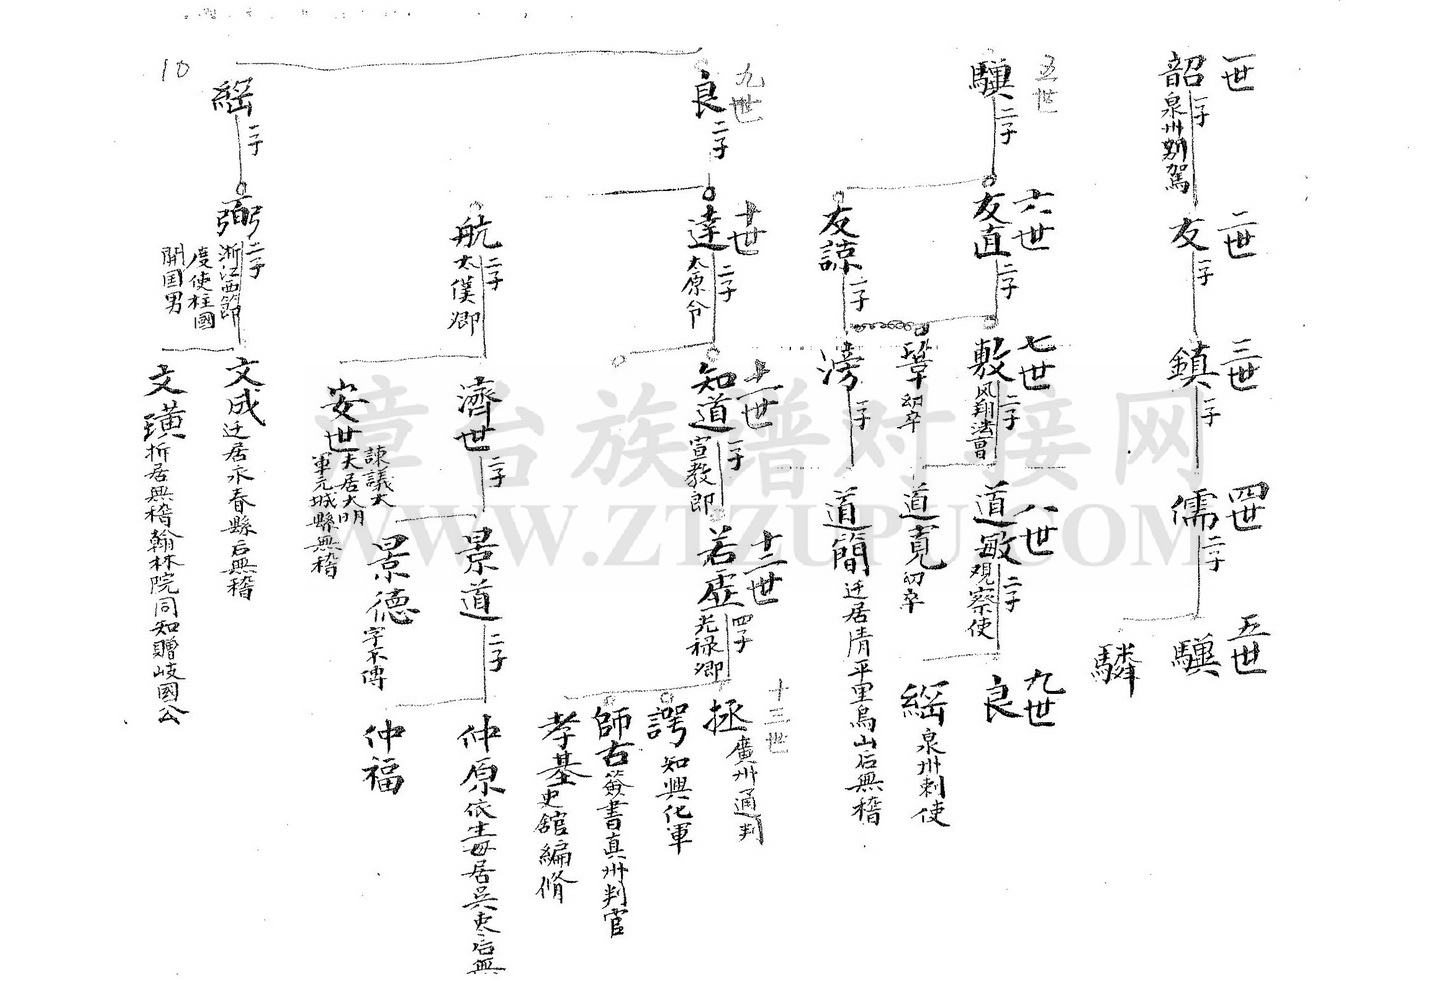 10
一世
韶
一子
泉州别駕
二世
友
一子
三世
鎮
一子
四世
儒
二子
五世
驥
驎
五世
驥
二子
六世
友直
二子
友諒
一子
七世
敷
二子
风翔法曹
鞏
幼卒
滂
一子
八世
道敏
二子
观察使
道寛
幼卒
道簡
迁居清平里烏山后無稽
九世
良
綰
泉州刺使
九世
良
二子
十世
達
二子
太原令
航
二子
太僕卿
十一世
知道
一子
宣教郎
濟世
二子
安世
諫議大
夫居大明
軍元城縣無稽
十二世
若虛
四子
光禄卿
景道
二子
景德
字不傳
十三世
拯
廣州通判
諤
知興化軍
師古
簽書真州判官
孝基
史舘編修
仲原
依生母居吴吏后無
仲福
綰
二子
弼
二子
浙江西節
度使柱國
開国男
文成
迁居永春縣后無稽
文璜
析居無稽翰林院同知贈岐國公
漳台族谱对接网
WWW.ZTZUPU.COM